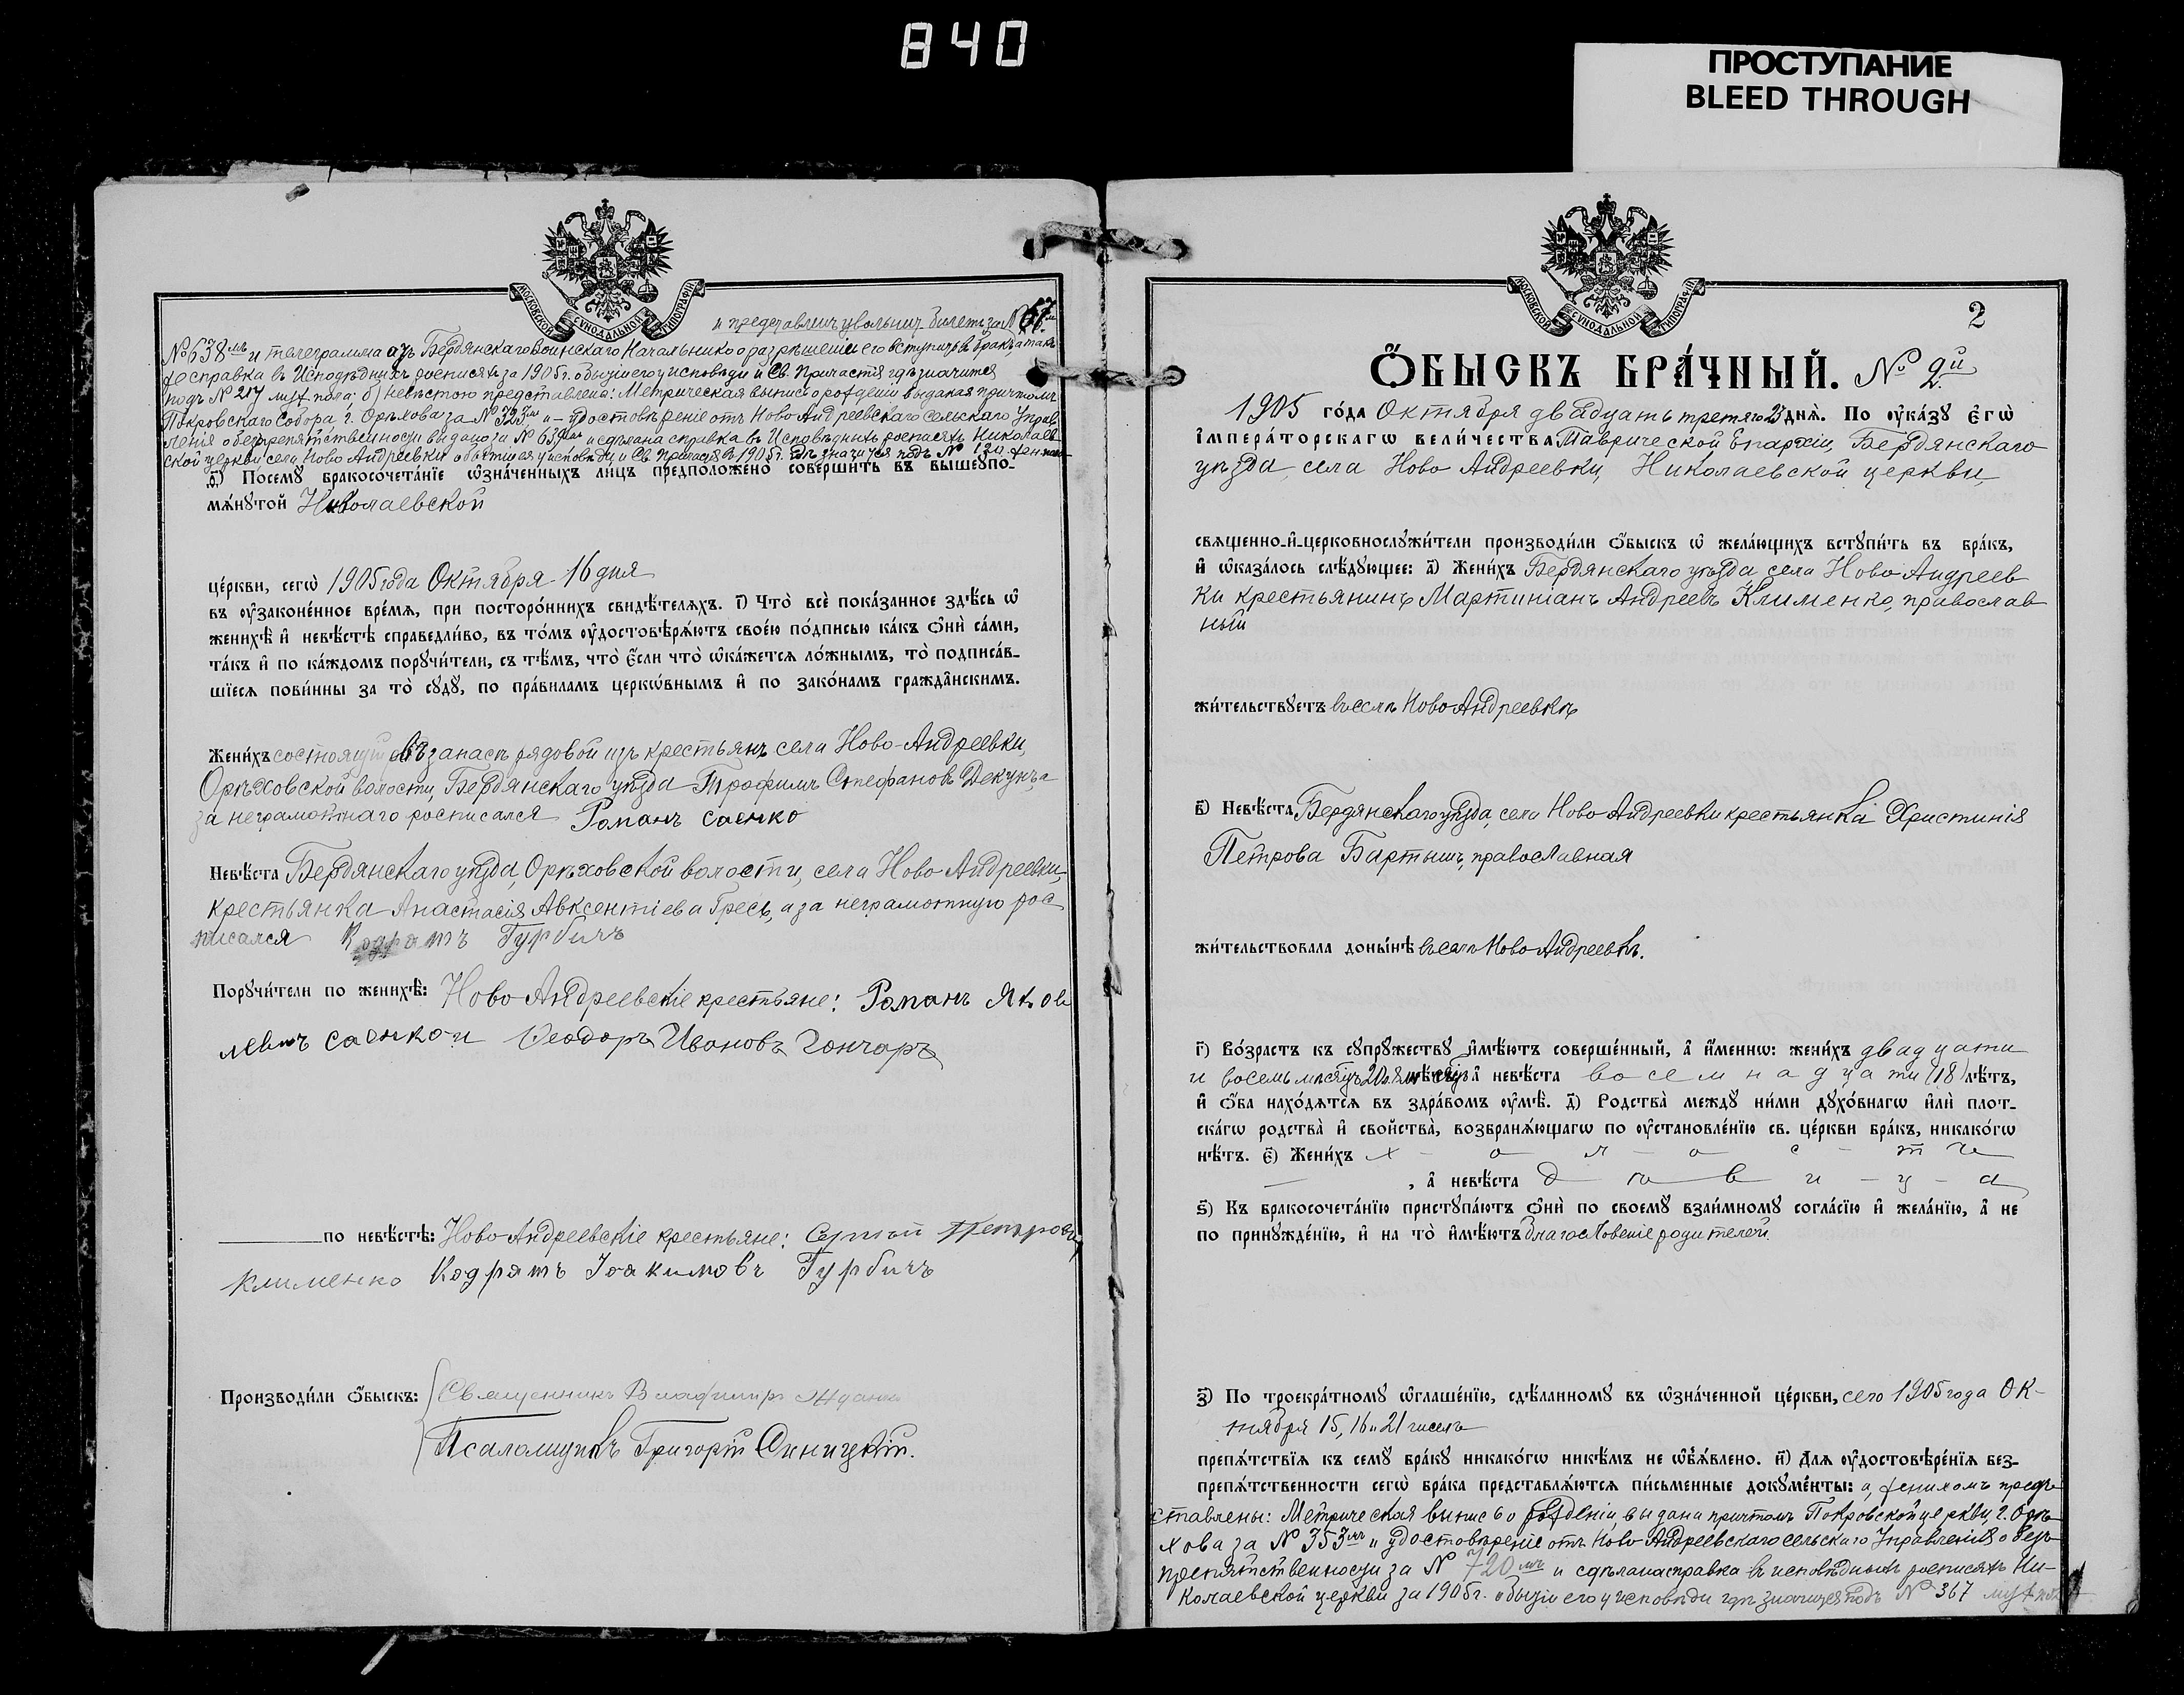 840
ПРОСТУПАНИЕ
BLEED THROUGH
МОСКОВСКОЙ СѴНОДАЛЬНОЙ ТИПОГРАФІИ
и представленъ увольнит. билетъ за №
№ 638мъ и телеграмма отъ Бердянскаго Воинскаго Начальника о разрѣшеніи его вступить въ бракъ, а так
же справка въ Исповѣдныхъ росписяхъ за 1905 г. о бытіи его у исповѣди и Св. Причастія гдѣ значится
подъ № 217 муж. пола; б) невѣстою представлено: Метрическая выпись о рожденіи выданая причтомъ
Покровскаго Собора, г. Орѣхова за № 323мъ и удостовѣреніе отъ Ново Андреевскаго Сельскаго Управ
ленія о безпрепятственности выдано за № 639мъ и сдѣлана справка въ Исповѣдныхъ росписяхъ Николаев
ской церкви, села Ново Андреевки о бытіи ея у исповѣди и Св. Причастія въ 1905 г. гдѣ значится подъ №
ѳ҃) Посемꙋ̀ бракосочета́нїе ѡ҆зна́ченныхъ ли́цъ предположено̀ соверши́ть въ вышеꙋпо-
мѧ́нꙋтой Николаевской
це́ркви, сегѡ̀ 1905 года Октября 16 дня
въ ᲂу҆зако́ненное вре́мѧ, при посторо́ннихъ свидѣ́телѧхъ. і҃) Что̀ всѐ пока́занное здѣ́сь ѡ҆
женихѣ̀ и҆ невѣ́стѣ справедли́во, въ то́мъ ᲂу҆достовѣрѧ́ютъ свое́ю по́дписью ка́къ ѻ҆нѝ са́ми,
та́къ и҆ по ка́ждомъ порꙋчи́тели, съ тѣ́мъ, что̀ є҆́сли что̀ ѡ҆ка́жется ло́жнымъ, то̀ подписа́в-
шїеся пови́нны за то̀ сꙋдꙋ̀, по пра́виламъ церко́внымъ и҆ по зако́намъ гражда́нскимъ.
Жени́хъ состоящій въ запасѣ рядовой изъ крестьянъ села Ново-Андреевки,
Орѣховской волости, Бердянскаго уѣзда Трофимъ Стефановъ Декунъ, а
за неграмотнаго росписался Романъ Саенко
Невѣ́ста Бердянскаго уѣзда, Орѣховской волости, села Ново Андреевки,
крестьянка Анастасія Авксентіева Гресь, а за неграмотную рос
писался Кодратъ Гурбичъ
Порꙋчи́тели по женихѣ̀: Ново Андреевскіе крестьяне: Романъ Яков
левичъ Саенко и Ѳеодоръ Ивановъ Гончаръ
по невѣ́стѣ: Ново Андреевскіе крестьяне: Сергій Петровъ
Клименко Кодратъ Іоакимовъ Гурбичъ
Производи́ли ѻ҆́быскъ: Священникъ Владиміръ
Псаломщикъ Григорій Синицкій.
МОСКОВСКОЙ СѴНОДАЛЬНОЙ ТИПОГРАФІИ
2
Ѻ҆́БЫСКЪ БРА́ЧНЫЙ. № 2й
1905 го́да Октября двадцать третяго 23 днѧ̀. По ᲂу҆ка́зꙋ є҆гѡ̀
і҆мпера́торскагѡ вели́чества Таврической Епархіи, Бердянскаго
уѣзда села Ново Андреевки, Николаевской церкви,
священно-и҆-церковнослꙋжи́тели производи́ли ѻ҆́быскъ ѡ҆ жела́ющихъ встꙋпи́ть въ бра́къ,
и҆ ѡ҆каза́лось слѣ́дꙋющее: а҃) Жени́хъ Бердянскаго уѣзда села Ново Андреев
ки крестьянинъ Мартиніанъ Андреевъ Клименко, православ
ный
жи́тельствꙋетъ въ селѣ Ново Андреевкѣ
в҃) Невѣ́ста Бердянскаго уѣзда, села Ново Андреевки крестьянка Христинія
Петрова Бартышъ, православная
жи́тельствовала доны́нѣ въ селѣ Ново Андреевкѣ.
г҃) Во́зрастъ къ сꙋпрꙋ́жествꙋ и҆мѣ́ютъ соверше́нный, а҆ и҆́менно: жени́хъ двадцати
и восемь мѣсяцъ а҆ невѣ́ста восемнадцати (18) лѣ́тъ,
и҆ ѻ҆́ба нахо́дятся въ здра́вомъ ᲂу҆мѣ̀. д҃) Родства̀ междꙋ̀ ни́ми дꙋхо́внагѡ и҆лѝ плот-
ска́гѡ родства̀ и҆ свойства̀, возбранѧ́ющагѡ по ᲂу҆становле́нїю св. це́ркви бра́къ, никако́гѡ
нѣ́тъ. є҃) Жени́хъ холостъ
, а҆ невѣ́ста дѣвица
ѕ҃) Къ бракосочета́нїю пристꙋпа́ютъ ѻ҆нѝ по своемꙋ̀ взаи́мномꙋ согла́сїю и҆ жела́нїю, а҆ не
по принꙋжде́нїю, и҆ на то̀ и҆мѣ́ютъ благословеніе родителей.
з҃) По троекра́тномꙋ ѡ҆глаше́нїю, сдѣ́ланномꙋ въ ѡ҆зна́ченной це́ркви, сего 1905 года Ок-
тября 15, 16 и 21 чиселъ
препѧ́тствїя къ семꙋ̀ бра́кꙋ никако́гѡ никѣ́мъ не ѡ҆б̾ѧ́влено. и҃) Для ᲂу҆достовѣре́нїя без-
препѧ́тственности сегѡ̀ бра́ка представлѧ́ются пи́сьменные докꙋме́нты: а, женихомъ пред
ставлены: Метрическая выпись о рожденіи, выдана причтомъ Покровской церкви, г. Орѣ
хова за № 353мъ и удостовѣреніе отъ Ново Андреевскаго сельскаго Управленія о без-
препятственности за № 720мъ и сдѣлана справка въ исповѣдныхъ росписяхъ Ни-
колаевской церкви за 1905 г. о бытіи его у исповѣди гдѣ значится подъ № 367 муж.